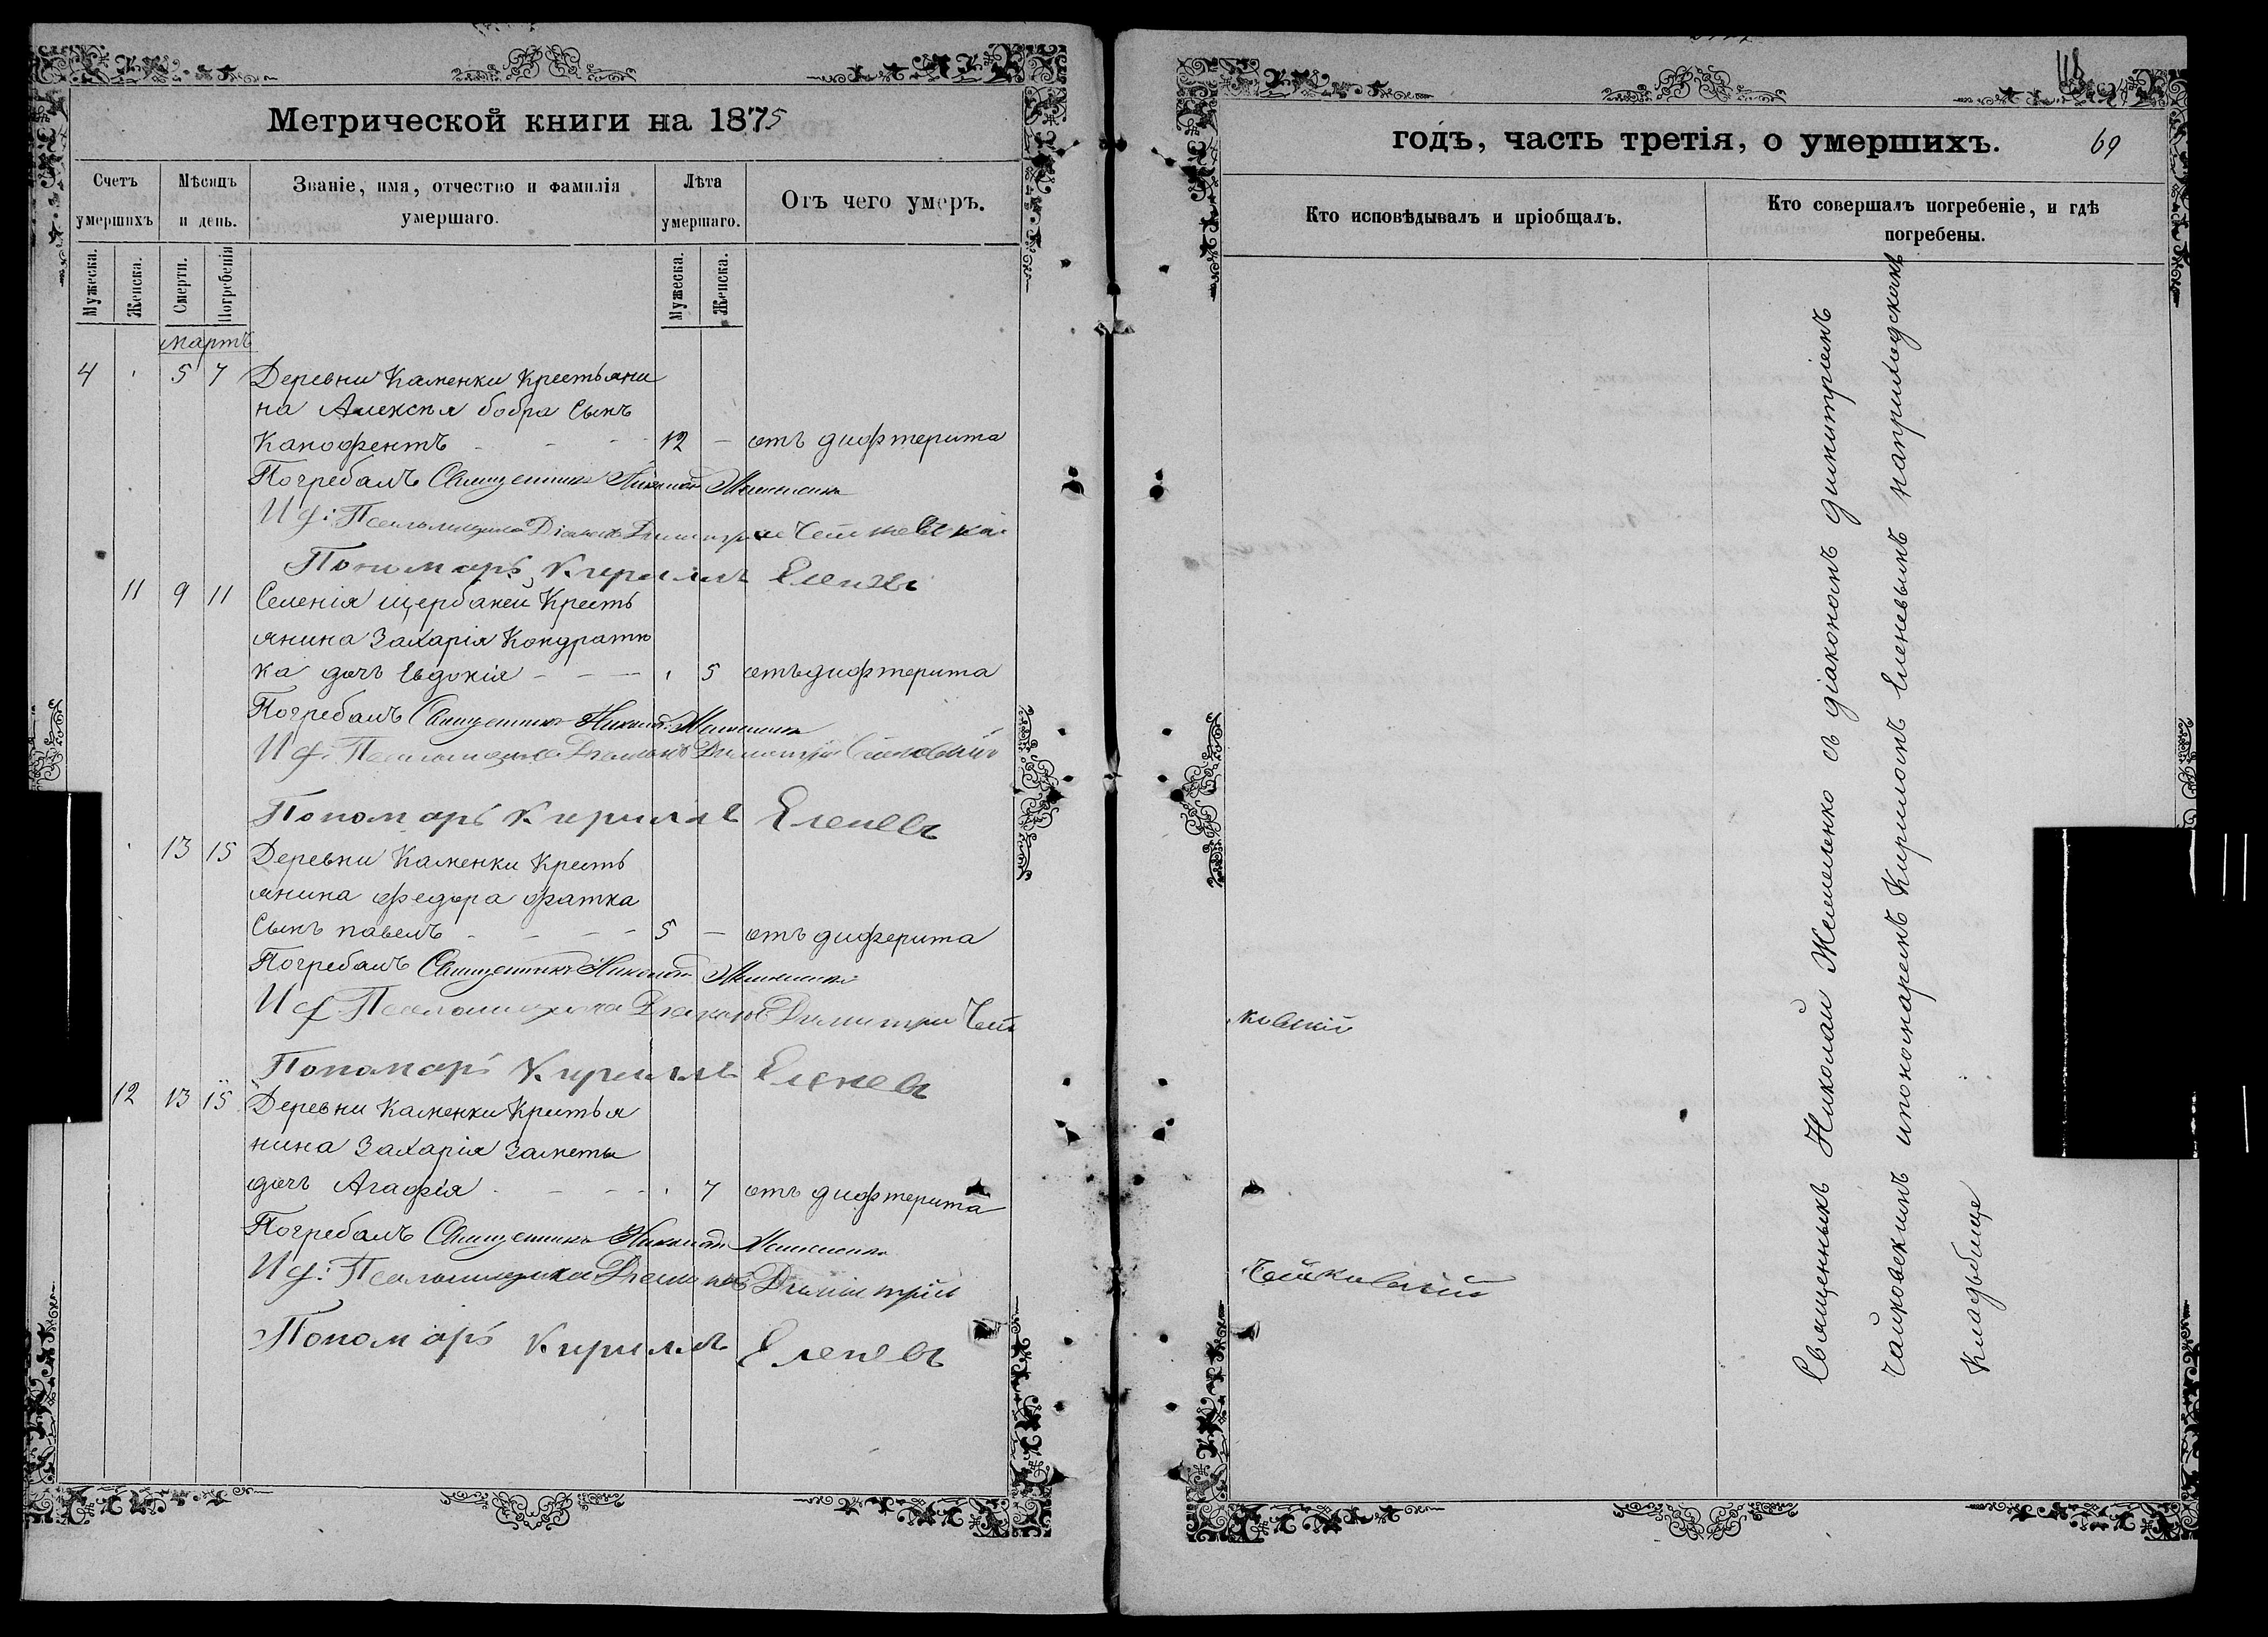 Метрической книги на 1875
Счетъ умершихъ
Мѣсяцъ и день.
Званіе, имя, отчество и фамилія умершаго.
Лѣта умершаго.
Отъ чего умеръ.
Мужеска.
Женска.
Смерти.
Погребенія
Мужеска.
Женска.
мартъ
4 5 7 Деревни Каменки Крестьяни
на Алексѣя бобра Сынъ
Канофентъ - - - 12 - отъ дифтерита
Погребалъ Священникъ Николай
И д: Псаломщика Діаконъ Димитрій
Пономарь Кириллъ Еленевъ
11 9 11 Селенія щербаней Кресть
янина Захарія Кондратю
ка дочь Евдокія - - - 5 отъ дифтерита
Погребалъ Священникъ Николай
И д. Псаломщика Діаконъ Димитрій
Пономарь Кириллъ Еленевъ
13 15 Деревни Каменки Кресть
янина федора фатка
Сынъ павелъ - - - - 5 - отъ дифверита
Погребалъ Священникъ Николай
И д Псаломщика Діаконъ Димитрій Чай
Пономарь Кириллъ Еленевъ
12 13 15 Деревни Каменки Кристья
нина Захарія
дочь Агафія - - - - 7 отъ дифтерита
Погребалъ Священникъ Николай
И д: Псаломщика Діаконъ Димитрій
Пономарь Кириллъ Еленевъ
годъ, часть третія, о умершихъ.
69
Кто исповѣдывалъ и пріобщалъ.
Кто совершалъ погребеніе, и гдѣ погребены.
ковскій
Чайковскій
Священныкъ Николай Жемеленко съ діакономъ димитріемъ
чайковскимъ ипономаремъ Кириломъ Еленевымъ наприходскомъ
Кладъбище